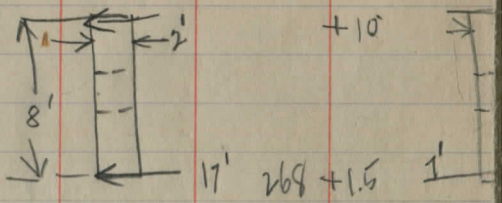 2' +10
8'
17' 268 +1.5 1'